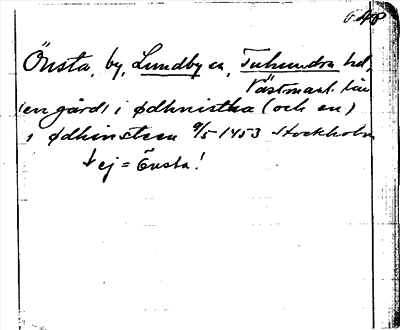 Önsta, by, Lundby sn, Tuhundra hd,
Västmanl. län
(en gård) i Ødhnistha (och en)
i Ødhinsteen 9/5 1453 Stockholm
ej = Ensta!